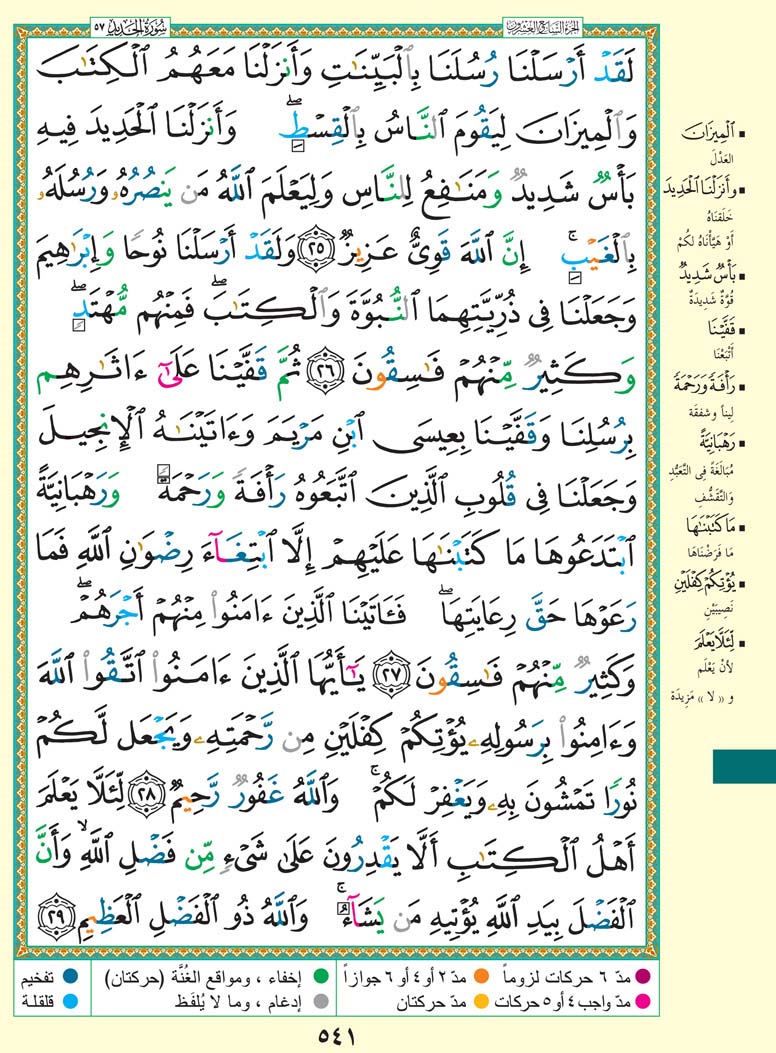 الجزء السابع والعشرون
سورة الحديد ٥٧
لَقَدْ أَرْسَلْنَا رُسُلَنَا بِٱلْبَيِّنَٰتِ وَأَنزَلْنَا مَعَهُمُ ٱلْكِتَٰبَ
وَٱلْمِيزَانَ لِيَقُومَ ٱلنَّاسُ بِٱلْقِسْطِۖ وَأَنزَلْنَا ٱلْحَدِيدَ فِيهِ
بَأْسٌ شَدِيدٌ وَمَنَٰفِعُ لِلنَّاسِ وَلِيَعْلَمَ ٱللَّهُ مَن يَنصُرُهُۥ وَرُسُلَهُۥ
بِٱلْغَيْبِۚ إِنَّ ٱللَّهَ قَوِىٌّ عَزِيزٌ ٢٥ وَلَقَدْ أَرْسَلْنَا نُوحًا وَإِبْرَٰهِيمَ
وَجَعَلْنَا فِى ذُرِّيَّتِهِمَا ٱلنُّبُوَّةَ وَٱلْكِتَٰبَۖ فَمِنْهُم مُّهْتَدٍۖ
وَكَثِيرٌ مِّنْهُمْ فَٰسِقُونَ ٢٦ ثُمَّ قَفَّيْنَا عَلَىٰٓ ءَاثَٰرِهِم
بِرُسُلِنَا وَقَفَّيْنَا بِعِيسَى ٱبْنِ مَرْيَمَ وَءَاتَيْنَٰهُ ٱلْإِنجِيلَ
وَجَعَلْنَا فِى قُلُوبِ ٱلَّذِينَ ٱتَّبَعُوهُ رَأْفَةً وَرَحْمَةًۚ وَرَهْبَانِيَّةً
ٱبْتَدَعُوهَا مَا كَتَبْنَٰهَا عَلَيْهِمْ إِلَّا ٱبْتِغَآءَ رِضْوَٰنِ ٱللَّهِ فَمَا
رَعَوْهَا حَقَّ رِعَايَتِهَاۖ فَـَٔاتَيْنَا ٱلَّذِينَ ءَامَنُوا۟ مِنْهُمْ أَجْرَهُمْۖ
وَكَثِيرٌ مِّنْهُمْ فَٰسِقُونَ ٢٧ يَٰٓأَيُّهَا ٱلَّذِينَ ءَامَنُوا۟ ٱتَّقُوا۟ ٱللَّهَ
وَءَامِنُوا۟ بِرَسُولِهِۦ يُؤْتِكُمْ كِفْلَيْنِ مِن رَّحْمَتِهِۦ وَيَجْعَل لَّكُمْ
نُورًا تَمْشُونَ بِهِۦ وَيَغْفِرْ لَكُمْۚ وَٱللَّهُ غَفُورٌ رَّحِيمٌ ٢٨ لِّئَلَّا يَعْلَمَ
أَهْلُ ٱلْكِتَٰبِ أَلَّا يَقْدِرُونَ عَلَىٰ شَىْءٍ مِّن فَضْلِ ٱللَّهِۙ وَأَنَّ
ٱلْفَضْلَ بِيَدِ ٱللَّهِ يُؤْتِيهِ مَن يَشَآءُۚ وَٱللَّهُ ذُو ٱلْفَضْلِ ٱلْعَظِيمِ ٢٩
▪ ٱلْمِيزَانَ
العَدْلَ
▪ وَأَنزَلْنَا ٱلْحَدِيدَ
خَلَقْنَاهُ
أَوْ هَيَّأْنَاهُ لَكُمْ
▪ بَأْسٌ شَدِيدٌ
قُوَّةٌ شَدِيدَةٌ
▪ قَفَّيْنَا
أَتْبَعْنَا
▪ رَأْفَةً وَرَحْمَةً
لِيناً وشفقة
▪ رَهْبَانِيَّةً
مُبَالَغَةً فِي التَّعَبُّدِ
وَالتَّقَشُّفِ
▪ مَا كَتَبْنَٰهَا
مَا فَرَضْنَاهَا
▪ يُؤْتِكُمْ كِفْلَيْنِ
نَصِيبَيْنِ
▪ لِّئَلَّا يَعْلَمَ
لأنْ يَعْلَم
و « لا » مَزِيدَة
مدّ ٦ حركات لزوماً
مدّ ٢ أو ٤ أو ٦ جوازاً
إخفاء ، ومواقع الغُنَّة (حركتان)
تفخيم
مدّ واجب ٤ أو ٥ حركات
مدّ حركتان
إدغام ، وما لا يُلفَظ
قلقلة
٥٤١